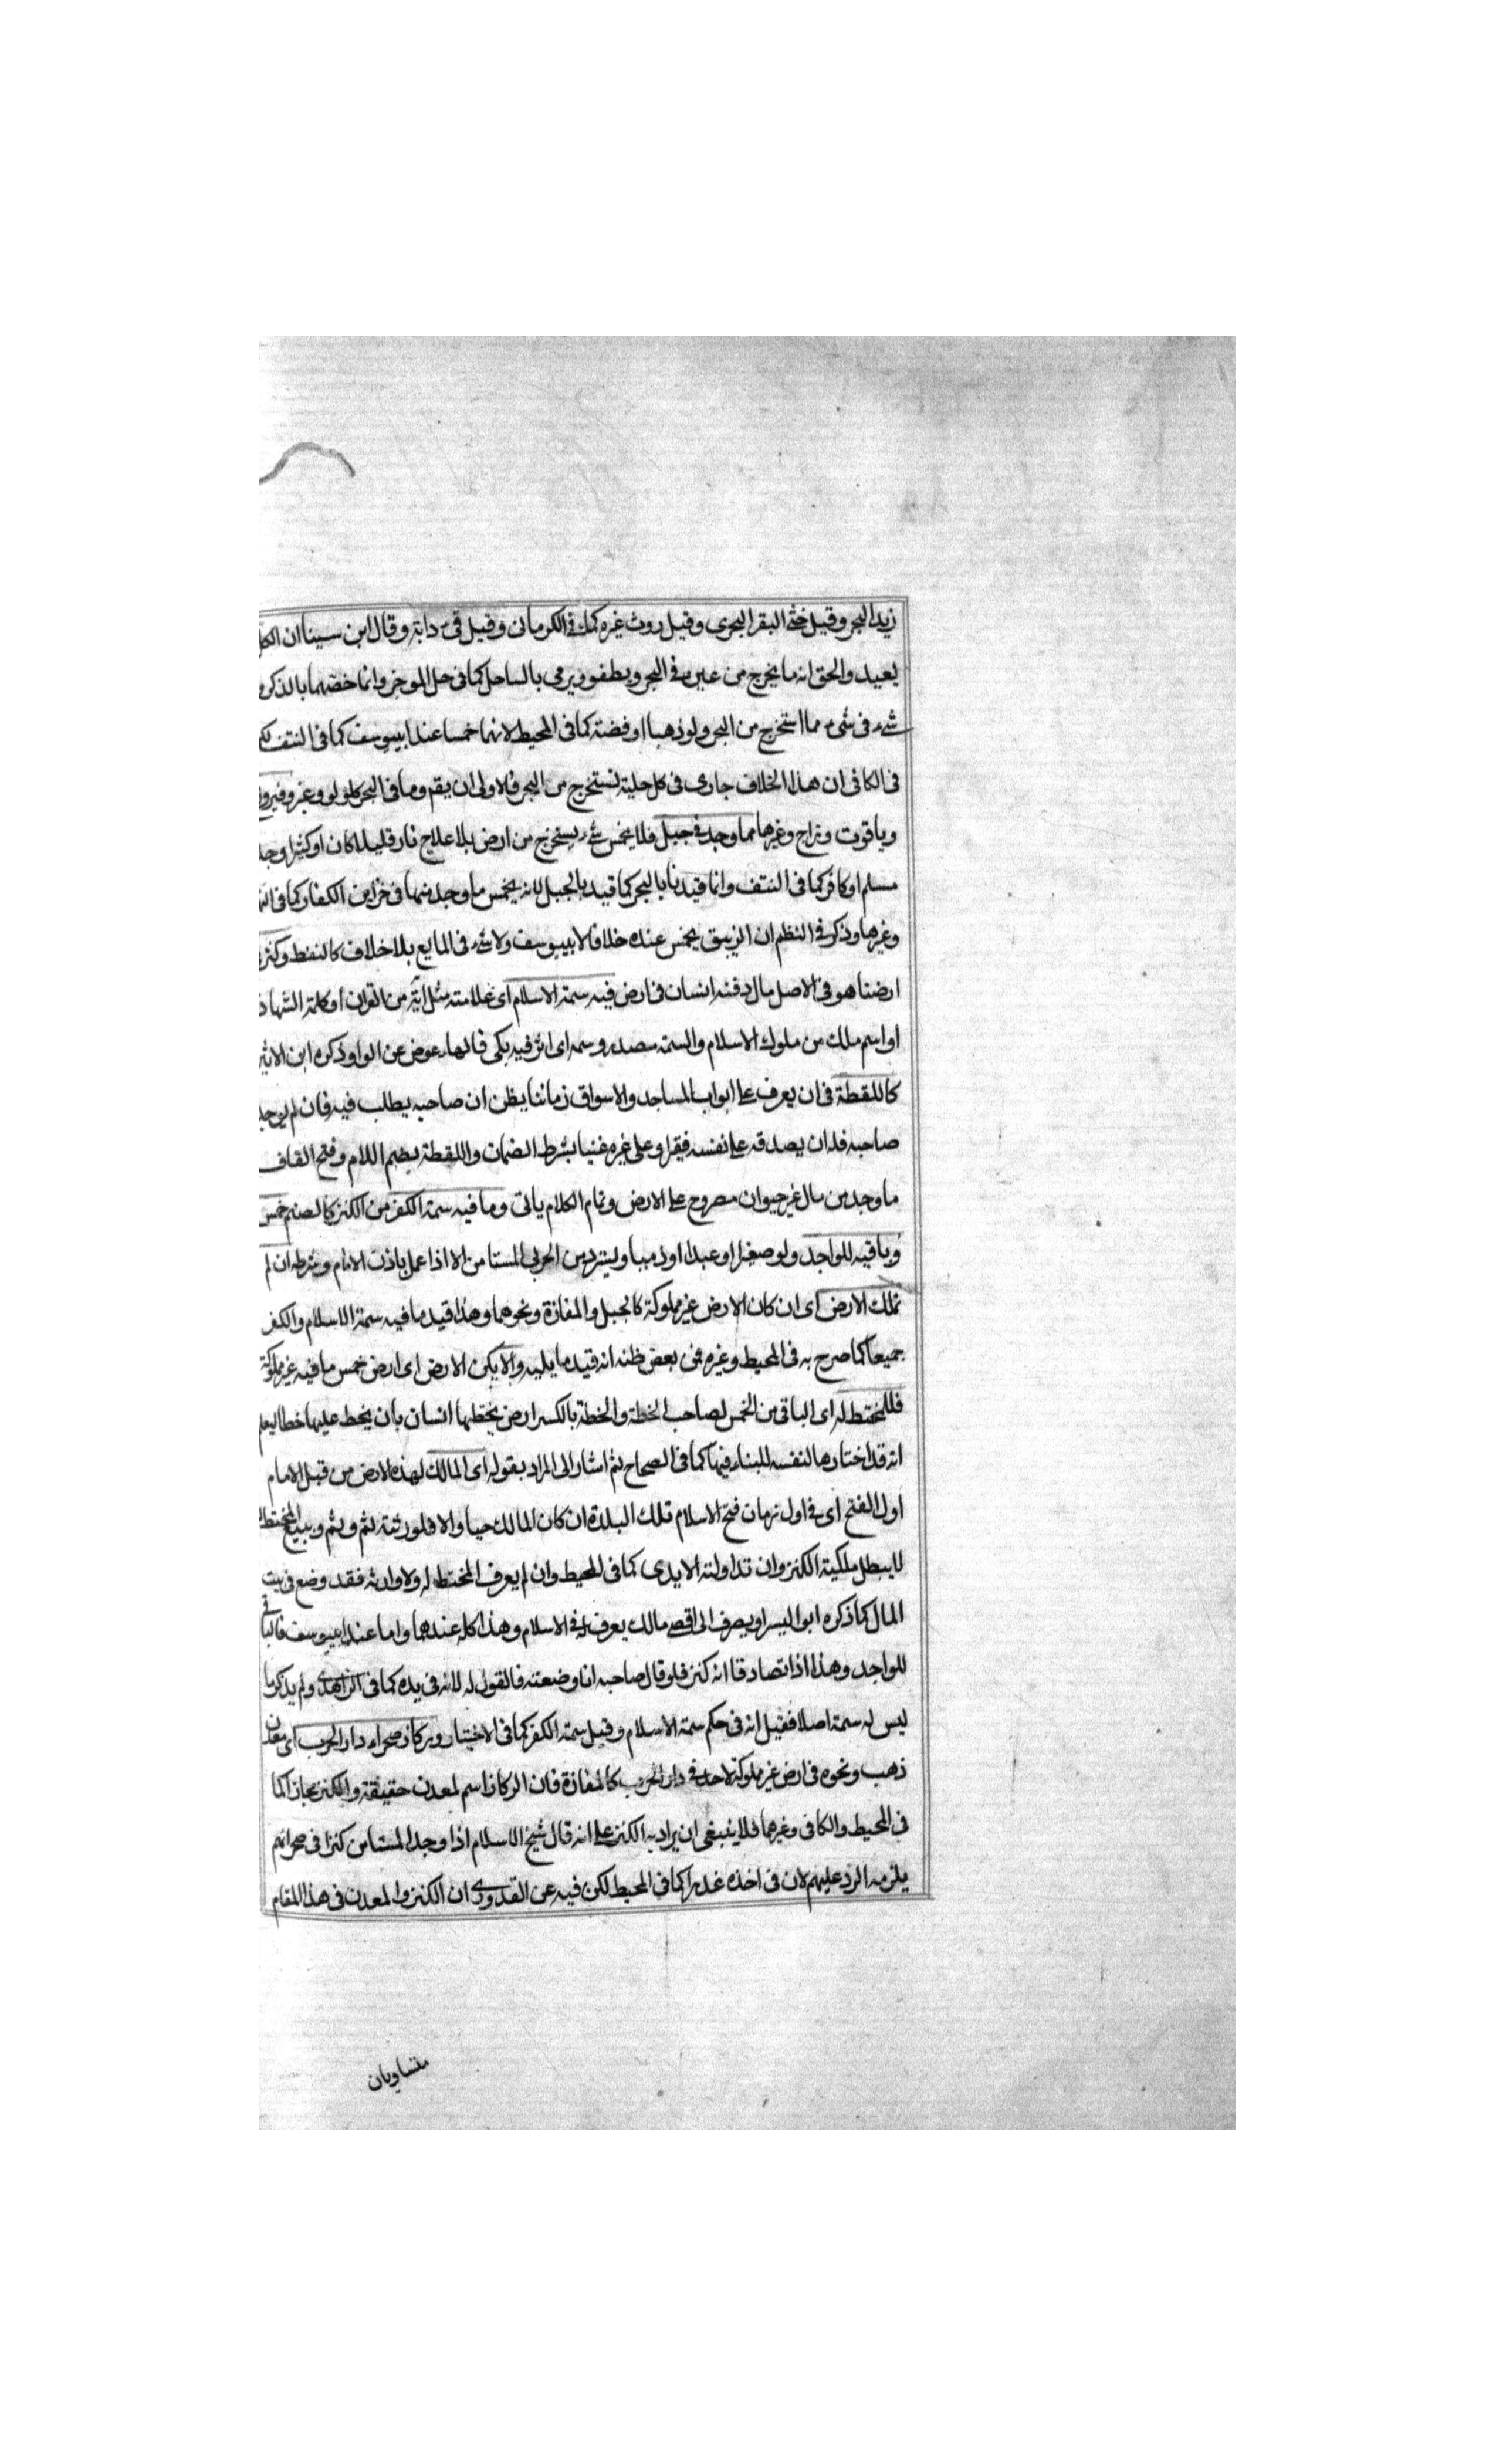 زبد البحر وقيل خثى البقر البحرى وقيل روث غيره كما فى الكرمانى وقيل قئ دابة وقال ابن سينا ان الكل
بعيد والحق انه ما يخرج من عين فى البحر ويطفو ويرمى بالساحل كما فى حل الموخر وانما خصهما بالذكر
شئ فى شئ مما استخرج من البحر ولو ذهبا او فضة كما فى المحيط لانهما خمسا عند ابيوسف كما فى النتف
فى الكافى ان هذا الخلاف جارى فى كل حلية تستخرج من البحر فالاولى ان يقم وما فى البحر كلولو وغيره وفيروزج
وياقوت وزاج وغيرها مما وجد فى جبل فلا يخمس شئ يستخرج من ارض بلا علاج نار قليلا كان او كثيرا وجد
مسلم او كافر كما فى النتف وانما قيدنا بالبحر كما قيد بالجبل لانه يخمس ما وجد منها فى خزاين الكفار كما فى
وغيرها وذكر فى النظم ان الزيبق يخمس عنده خلافا لابييوسف ولا شئ فى المايع بلا خلاف كالنفط وكنز
ارضنا هو فى الاصل مال دفنه انسان فى ارض فيه سمة الاسلام اى علامته مثل اية من القران او كلمة الشهادة
او اسم ملك من ملوك الاسلام والسمة مصدر وسمه اى اثر فيه بكى فالهاء عوض عن الواو ذكره ابن الاثير
كاللقطة فى ان يعرف على ابواب المساجد والاسواق زمانا يظن ان صاحبه يطلب فيه فان لم يوجد
صاحبه فله ان يصدقه على نفسه فقيرا وعلى غيره غنيا بشرط الضمان واللقطة بضم اللام وفتح القاف
ما وجد من مال غير حيوان مصروح على الارض وتمام الكلام ياتى وما فيه سمة الكفر من الكنز كالصنم خمس
وباقيه للواجد ولو صغيرا او عبدا او ذميا ويسترد من الحربى المستامن الا اذا عمل باذن الامام وشرطه ان لم
تملك الارض اى ان كان الارض غير مملوكة كالجبل والمفازة ونحوهما وهذا قيد ما فيه سمة الاسلام والكفر
جميعا كما صرح به فى المحيط وغيره فمن بعض ظنه انه قيد ما يليه والا يكن الارض اى ارض خمس ما فيه غير مملوكة
فللمختط له اى الباقى من الخمس لصاحب الخطة والخطة بالكسر ارض يختطها انسان بان يخط عليها خطا ليعلم
انه قد اختارها لنفسه للبناء فيها كما فى الصحاح ثم اشار الى المراد بقوله اى المالك لهذه الارض من قبل الامام
اول الفتح اى فى اول زمان فتح الاسلام تلك البلدة ان كان المالك حيا والا فلورثته ثم وثم وببيع المختط
لا يبطل ملكية الكنز وان تداولته الايدى كما فى المحيط وان لم يعرف المختط له ولا وارثه فقد وضع فى بيت
المال كما ذكره ابو اليسر او يصرف الى اقصى مالك يعرف له فى الاسلام وهذا كله عندهما واما عند ابييوسف فالباقى
للواجد وهذا اذا تصادقا انه كنز فلو قال صاحبه انا وضعته فالقول له لانه فى يده كما فى الزاهدى ولم يذكر ما
ليس له سمة اصلا فقيل انه فى حكم سمة الاسلام وقيل سمة الكفر كما فى الاختيار وركاز صحراء دار الحرب اى معدن
ذهب ونحوه فى ارض غير مملوكة لاحد فى دار الحرب كالمفازة فان الركاز اسم لمعدن حقيقة والكنز مجازا كما
فى المحيط والكافى وغيرهما فلا ينبغى ان يراد به الكنز على انه قال شيخ الاسلام اذا وجد المستامن كنزا فى صحرائهم
يلزمه الرد عليهم لان فى اخذه غدرا كما فى المحيط لكن فيه عن القدورى ان الكنز والمعدن فى هذا المقام
متساويان